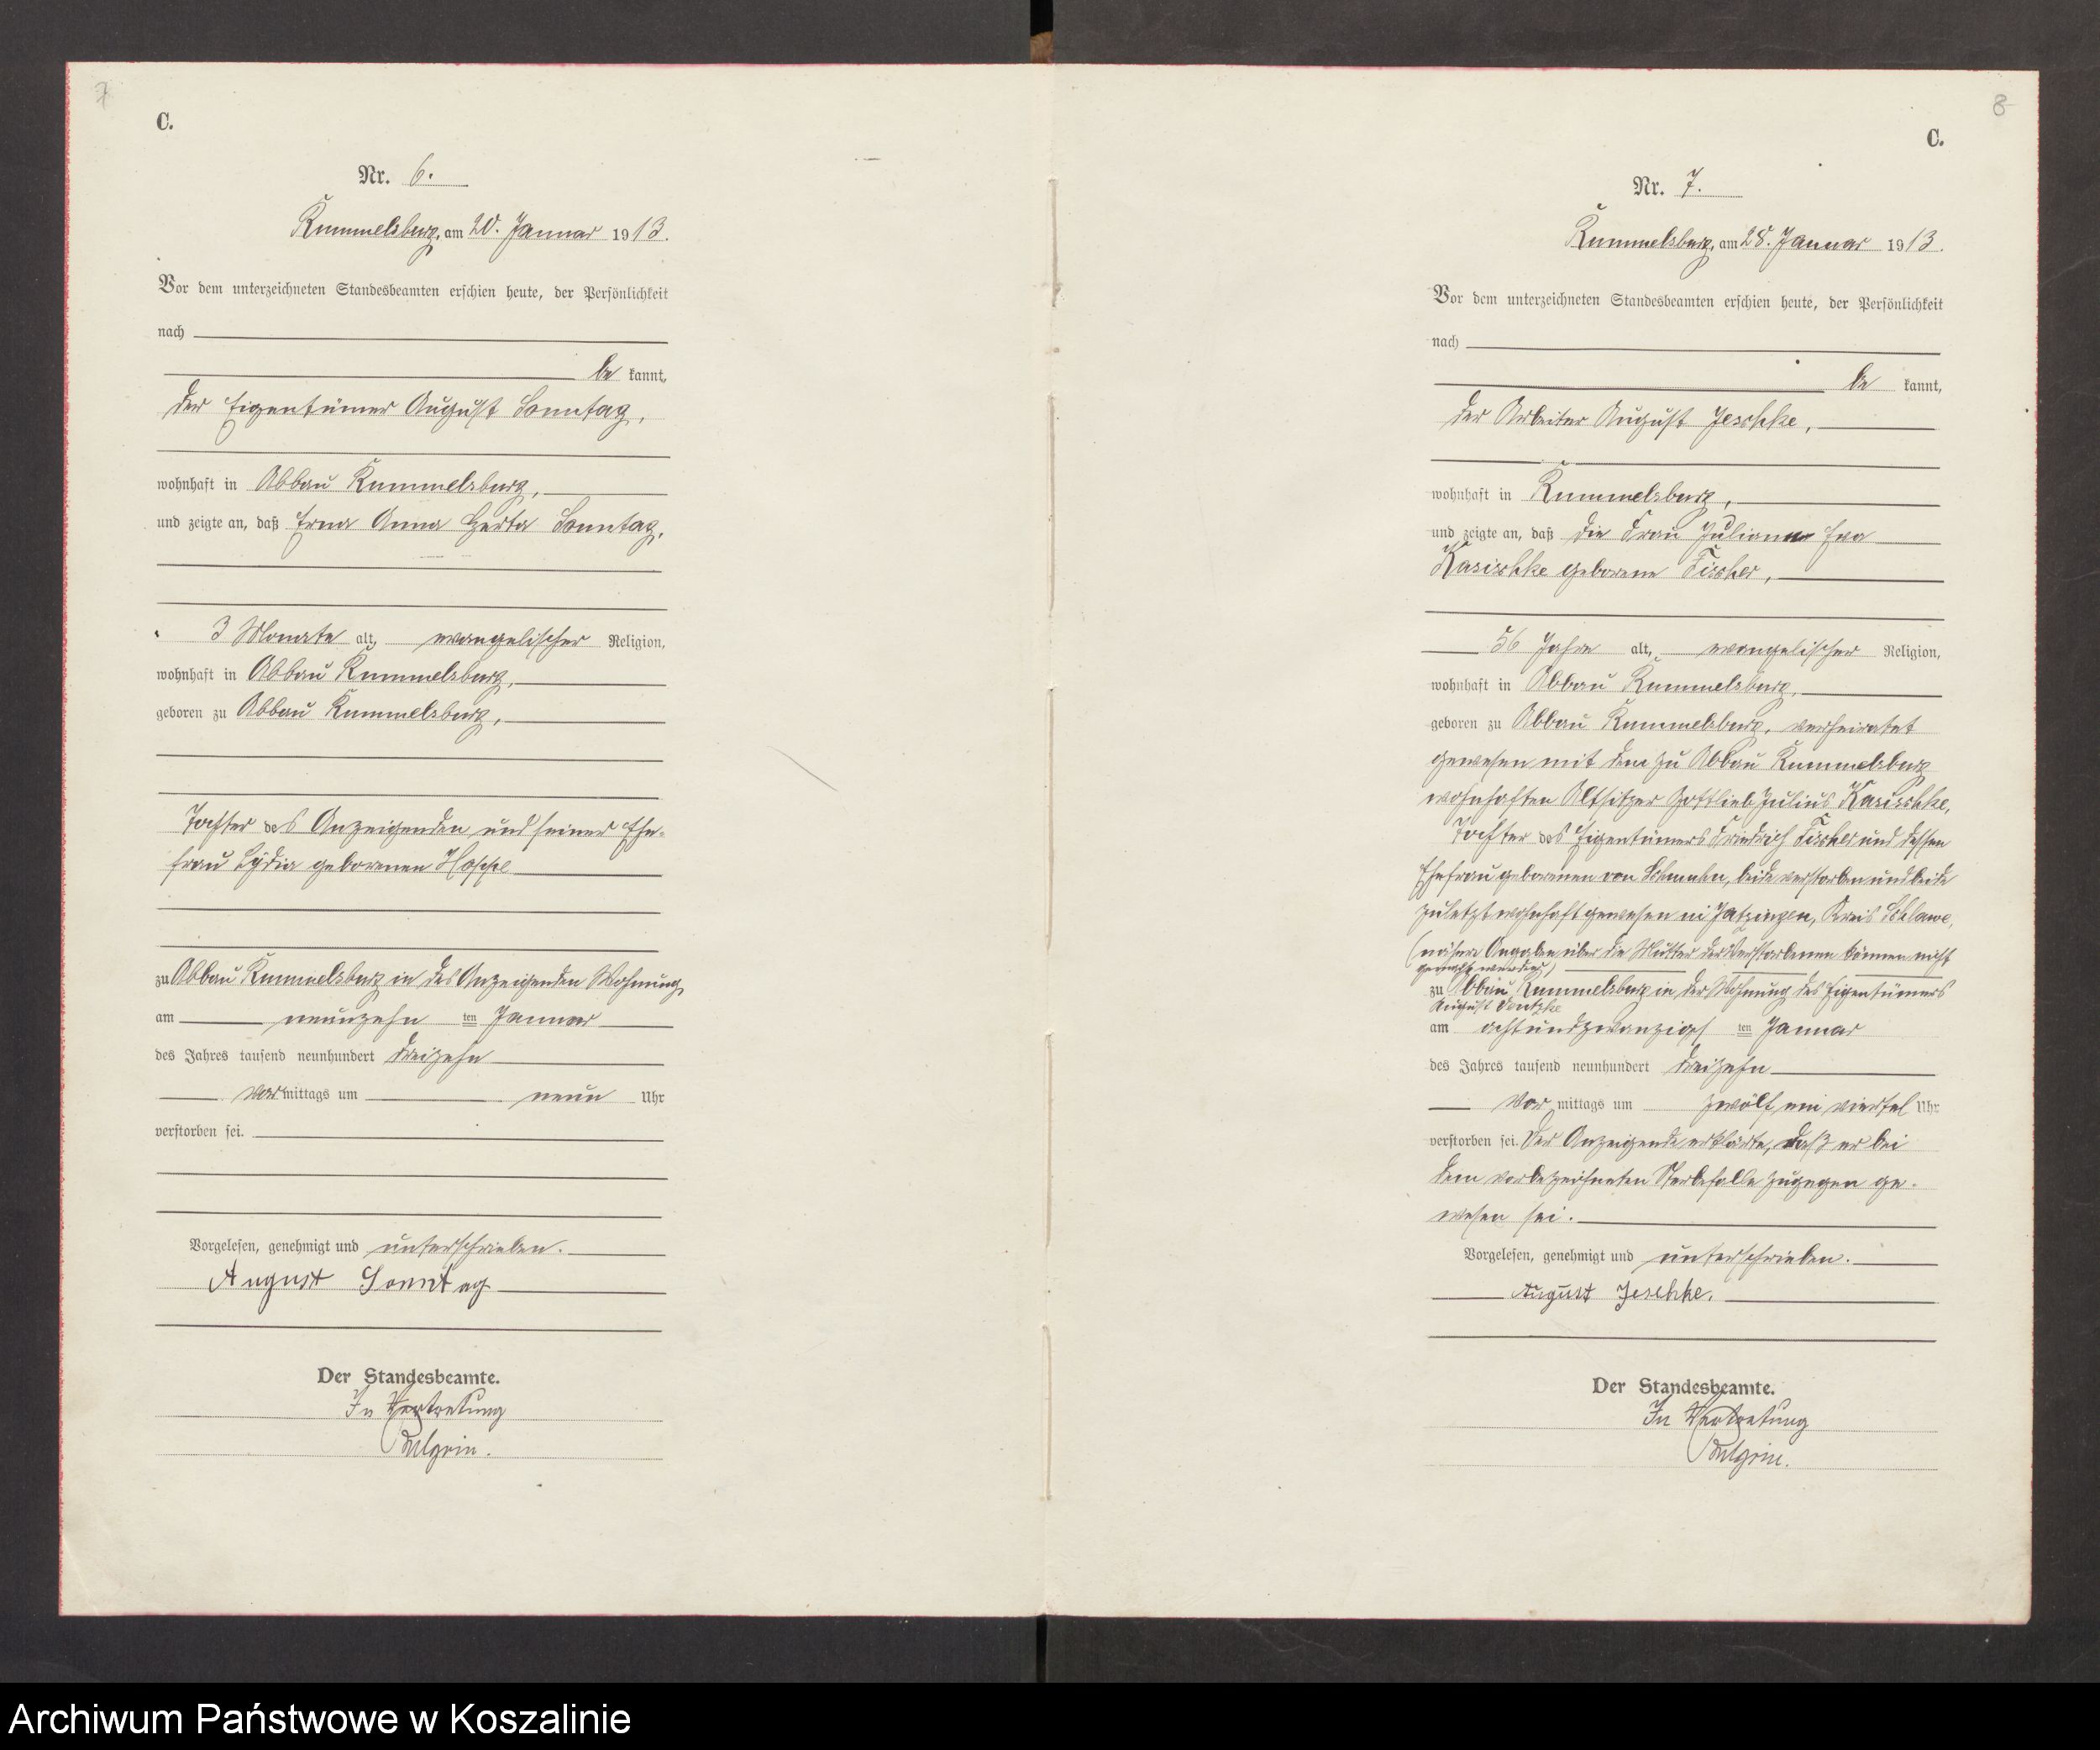 7
C.
Nr. 6.
Rummelsburg, am 20. Januar 1913.
Vor dem unterzeichneten Standesbeamten erschien heute, der Persönlichkeit
nach
be kannt,
der Eigentümer August Sonntag,
wohnhaft in Abbau Rummelsburg,
und zeigte an, daß Erna Anna Herta Sonntag,
3 Monate alt, evangelischer Religion,
wohnhaft in Abbau Rummelsburg,
geboren zu Abbau Rummelsburg,
Tochter des Anzeigenden und seiner Ehe-
frau Lydia geborenen Hoppe
zu Abbau Rummelsburg in des Anzeigenden Wohnung,
am neunzehn ten Januar
des Jahres tausend neunhundert dreizehn
vor mittags um neun Uhr
verstorben sei.
Vorgelesen, genehmigt und unterschrieben.
August Sonntag
Der Standesbeamte.
In Vertretung
8
C.
Nr. 7.
Rummelsburg, am 28. Januar 1913.
Vor dem unterzeichneten Standesbeamten erschien heute, der Persönlichkeit
nach
be kannt,
der Arbeiter August Jeschke,
wohnhaft in Rummelsburg,
und zeigte an, daß die Frau Juliane Eva
Kasischke geborene Fischer,
56 Jahre alt, evangelischer Religion,
wohnhaft in Abbau Rummelsburg,
geboren zu Abbau Rummelsburg, verheiratet
gewesen mit dem zu Abbau Rummelsburg
wohnhaften Altsitzer Gottlieb Julius Kasischke,
Tochter des Eigentümers Friedrich Fischer und dessen
Ehefrau geborenen von beide verstorben und beide
zuletzt wohnhaft gewesen in Kreis Schlawe,
(nähere Angaben über die Mutter der Verstorbenen können nicht
gemacht werden)
zu Abbau Rummelsburg in der Wohnung des Eigentümers
August
am achtundzwanzigs ten Januar
des Jahres tausend neunhundert dreizehn
Vor mittags um zwölf ein viertel Uhr
verstorben sei. Der Anzeigende erklärte, daß er bei
dem vorbezeichneten Sterbefalle zugegen ge-
wesen sei.
Vorgelesen, genehmigt und unterschrieben.
August Jeschke.
Der Standesbeamte.
In Vertretung
Archiwum Państwowe w Koszalinie